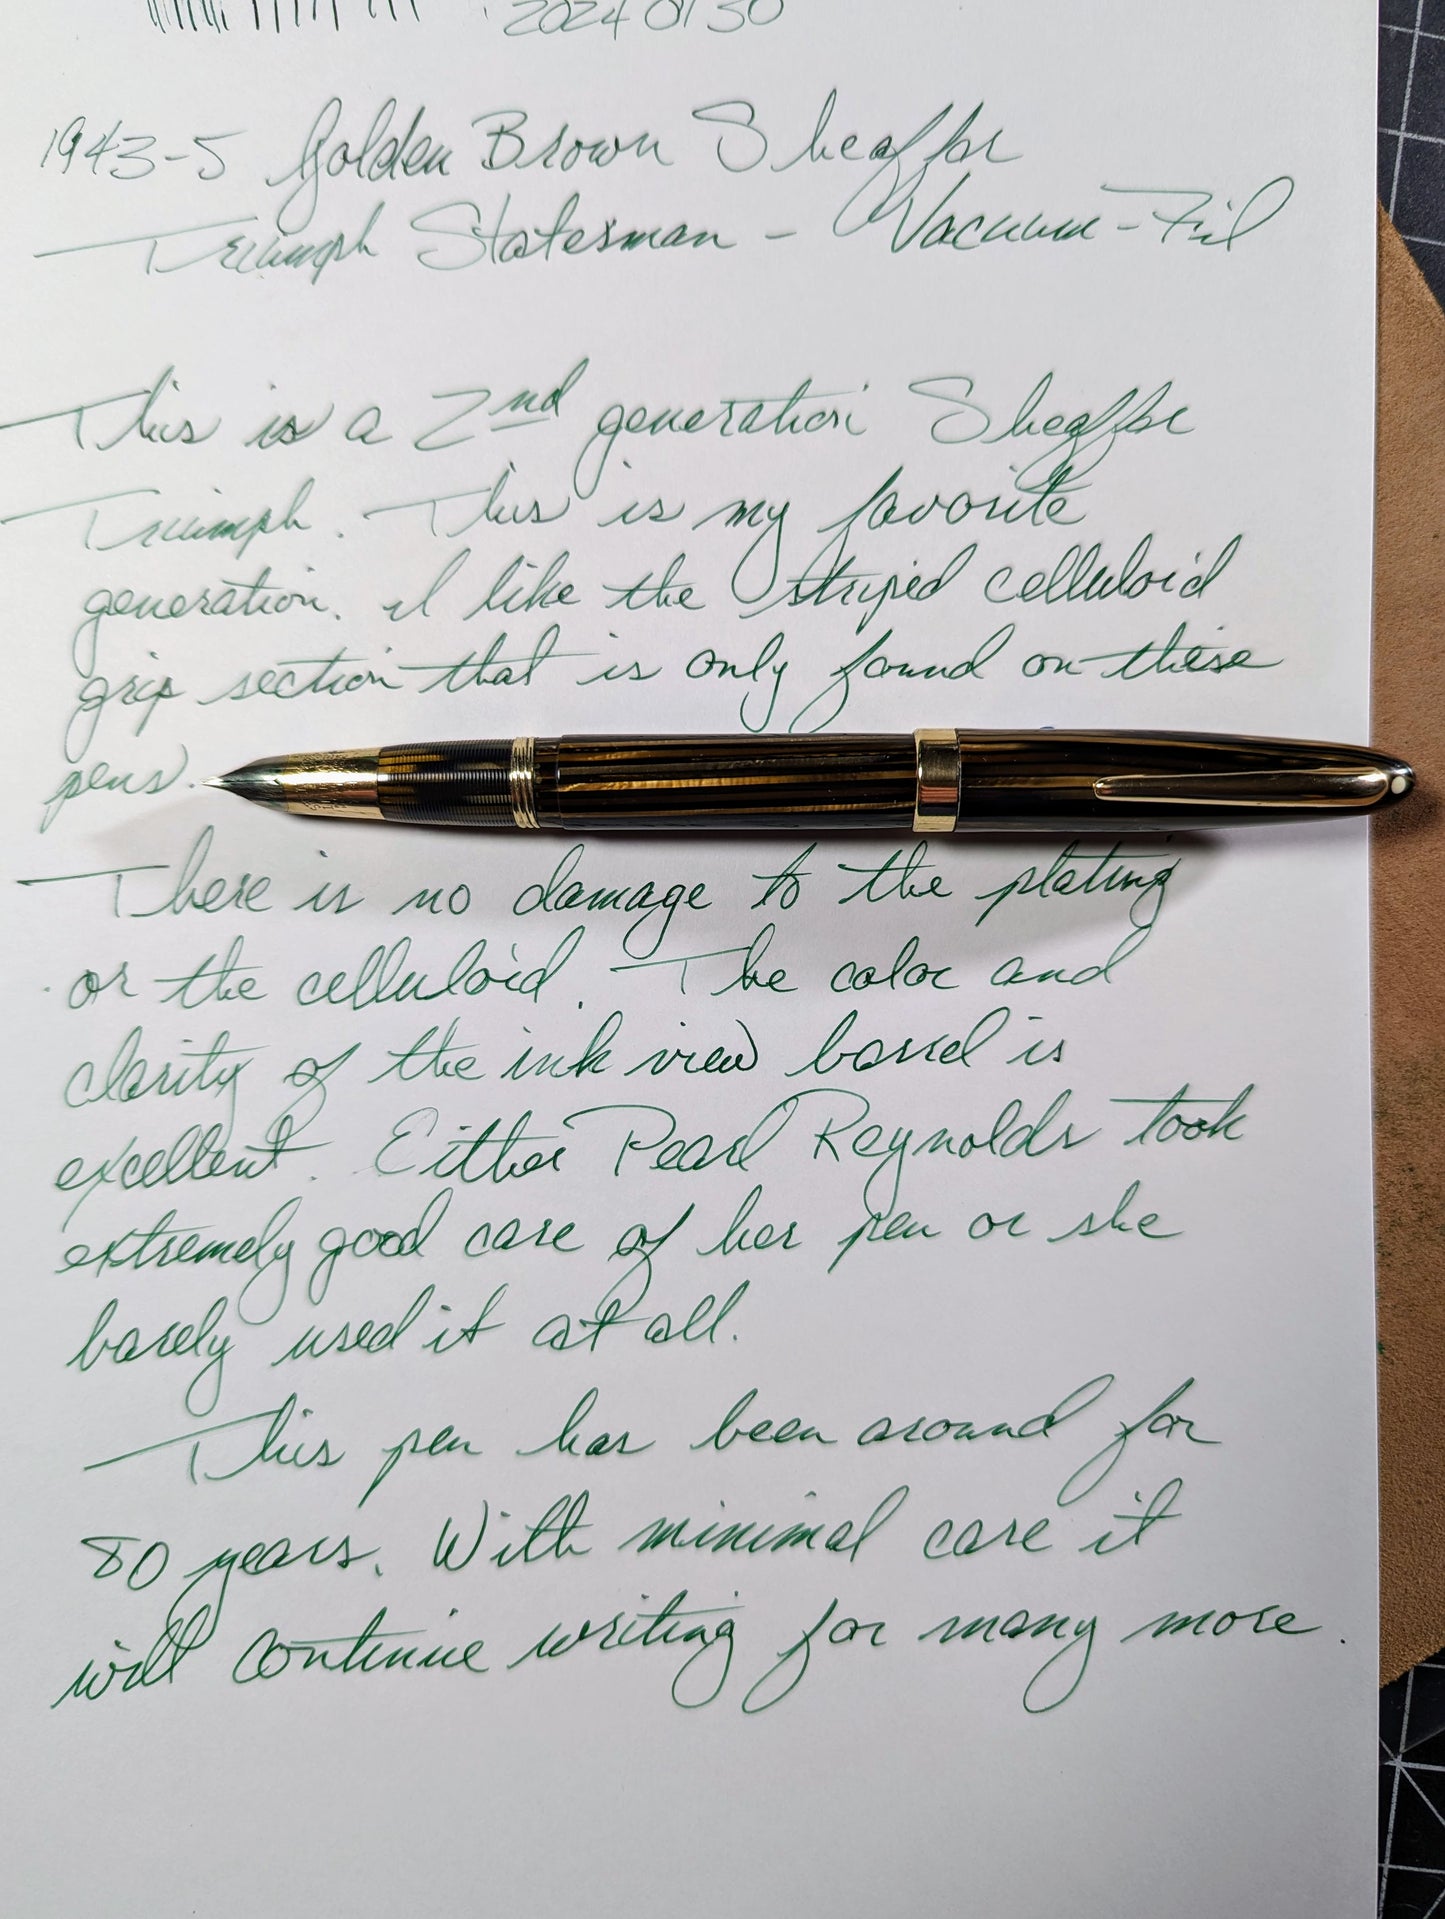 2024 01 30
1943-5 Golden Brown Sheaffer
Triumph Statesman - Vacuum-Fil
This is a 2nd generation Sheaffer
Triumph. This is my favorite
generation. I like the striped celluloid
grip section that is only found on these
pens.
There is no damage to the plating
or the celluloid. The color and
clarity of the ink view barrel is
excellent. Either Pearl Reynolds took
extremely good care of her pen or she
barely used it at all.
This pen has been around for
80 years. With minimal care it
will continue writing for many more.